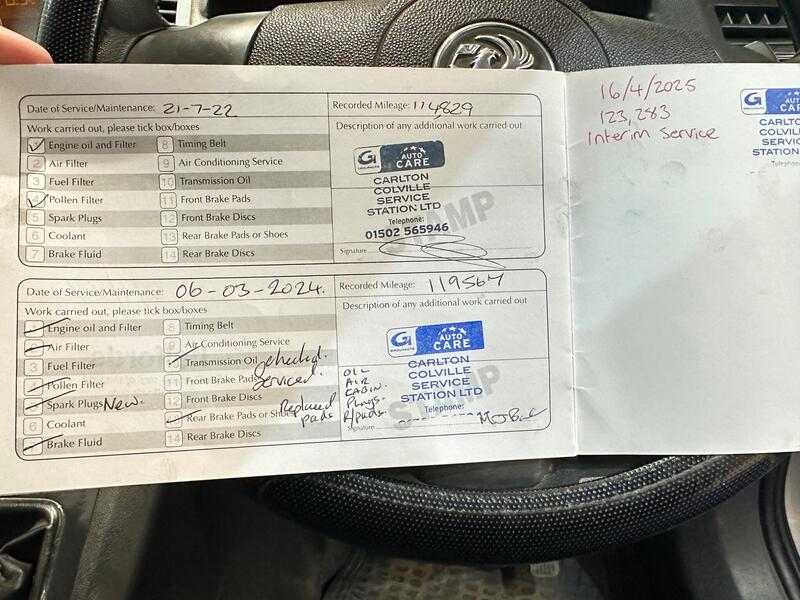 Date of Service/Maintenance: 21-7-22
Recorded Mileage: 114829
Work carried out, please tick box/boxes
Description of any additional work carried out
1 Engine oil and Filter
8 Timing Belt
2 Air Filter
9 Air Conditioning Service
3 Fuel Filter
10 Transmission Oil
4 Pollen Filter
11 Front Brake Pads
5 Spark Plugs
12 Front Brake Discs
6 Coolant
13 Rear Brake Pads or Shoes
7 Brake Fluid
14 Rear Brake Discs
G AUTO CARE
GROUPAUTO
CARLTON
COLVILLE
SERVICE
STATION LTD
Telephone:
01502 565946
STAMP
Signature
Date of Service/Maintenance: 06-03-2024.
Recorded Mileage: 119567
Work carried out, please tick box/boxes
Description of any additional work carried out
Engine oil and Filter
8 Timing Belt
Air Filter
9 Air Conditioning Service
3 Fuel Filter
Transmission Oil checked.
Pollen Filter
11 Front Brake Pads Serviced.
Spark Plugs New.
12 Front Brake Discs
6 Coolant
Rear Brake Pads or Shoes Replaced pads
Brake Fluid
14 Rear Brake Discs
G AUTO CARE
GROUPAUTO
CARLTON
COLVILLE
SERVICE
STATION LTD
Telephone:
OIL
AIR
CABIN.
PLUGS.
R/pads.
STAMP
Signature
16/4/2025
123,283
Interim Service
G AUTO
CARLT
COLVIL
SERVIC
STATION
Teleph